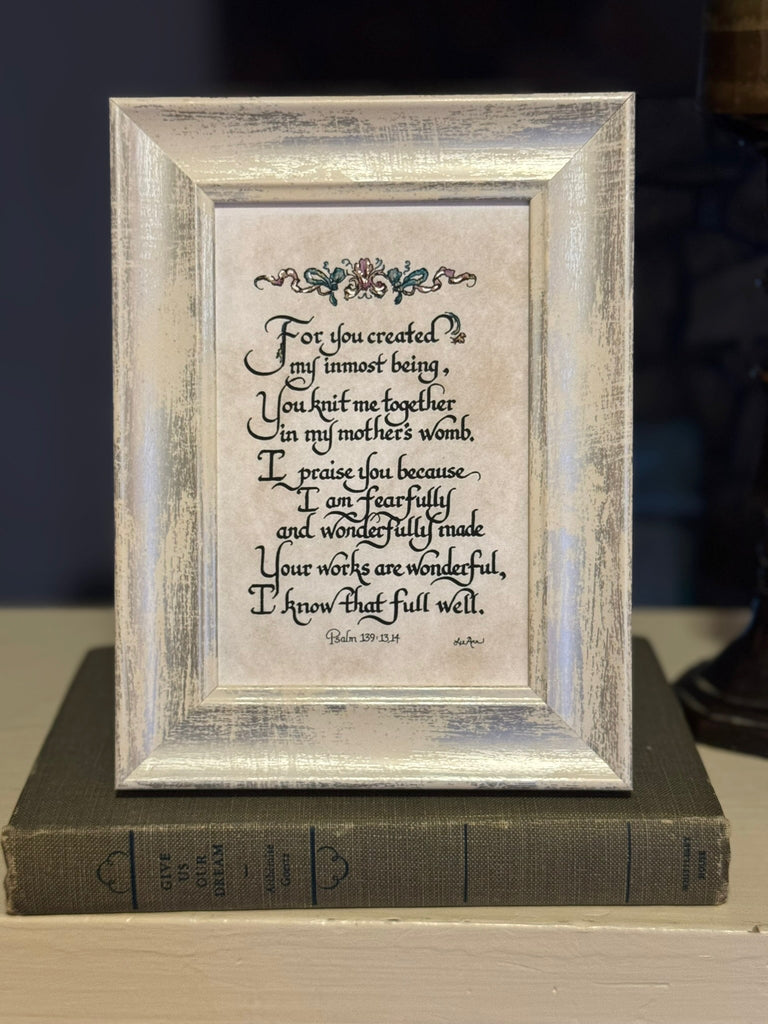 For you created
my inmost being,
You knit me together
in my mother's womb.
I praise you because
I am fearfully
and wonderfully made
Your works are wonderful,
I know that full well.
Psalm 139:13,14
LeeAnn
GIVE
US
OUR
DREAM
Arthemise
Goertz
WHITTLESEY
HOUSE